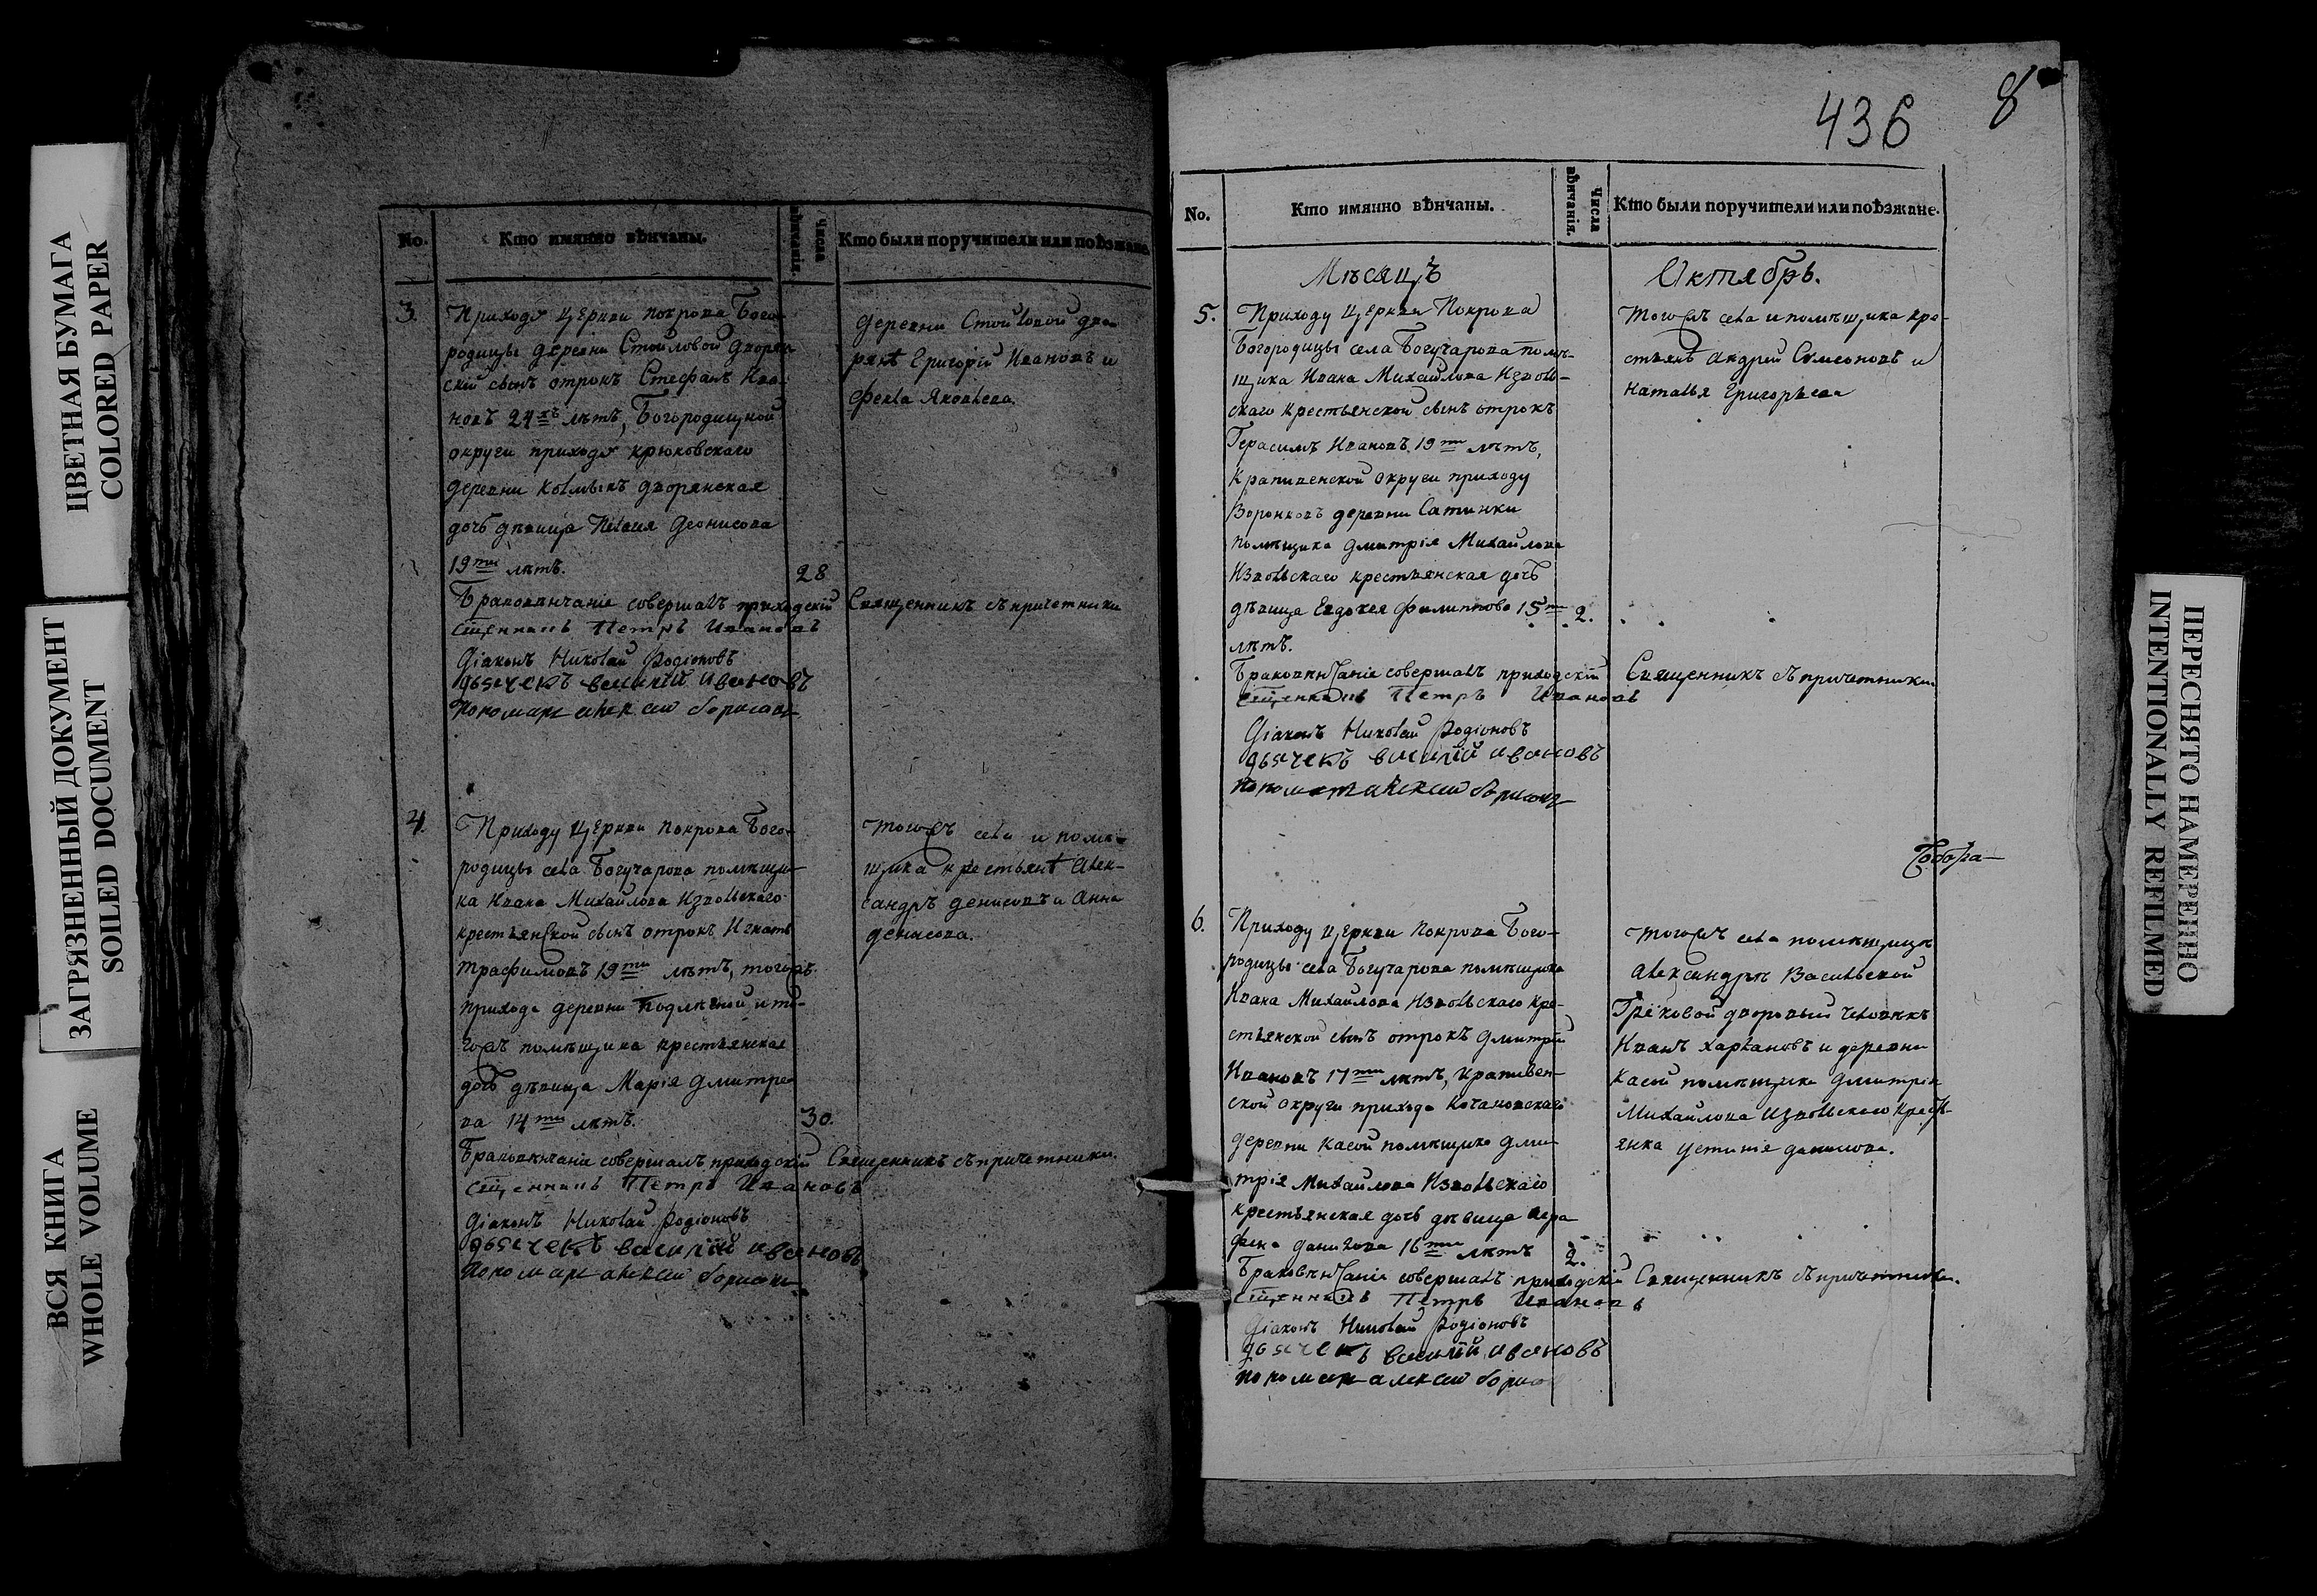 ЦВЕТНАЯ БУМАГА
COLORED PAPER
ЗАГРЯЗНЕННЫЙ ДОКУМЕНТ
SOILED DOCUMENT
ВСЯ КНИГА
WHOLE VOLUME
No.
Кто имянно вѣнчаны.
Числа вѣнчанія.
Кто были поручители или поѣзжане
3.
Приходу Церкви покрова Бого-
родицы деревни Стоиловой дворян-
ской сынъ отрокъ Стефанъ Ива-
новъ 24хъ лѣтъ, Богородицкой
округи приходу крюковскаго
деревни дворянская
дочь дѣвица Пелагия Деонисова
19ти лѣтъ.
28
деревни Стоиловой дво-
рянѣ Григорій Ивановъ и
Фекла Яковлева.
Браковѣнчаніе совершалъ приходскій Священникъ съ причетники
Сщенникъ Петръ Ивановъ
Діаконъ Николай Родіоновъ
дьячекъ василій ивановъ
Пономарь алексѣй борисовъ
4.
Приходу Церкви покрова Бого-
родицы села Богучарова помѣщи-
ка Ивана Михайлова Извольскаго
крестьянской сынъ отрокъ Игнатъ
Трафимовъ 19ти лѣтъ, тогожъ
прихода деревни Подлѣсной, и то-
гожъ помѣщика крестьянская
дочь дѣвица Марія Дмитрее-
ва 14ти лѣтъ.
30.
Тогожъ села и помѣ-
щика крестьянѣ Алек-
сандръ денисовъ и Анна
денисова.
Браковѣнчаніе совершалъ приходскій Священникъ съ причетники.
Сщенникъ Петръ Ивановъ
Діаконъ Николай Родіоновъ
дьячекъ василій ивановъ
Пономарь алексѣй борисовъ
436
8
No.
Кто имянно вѣнчаны.
Числа вѣнчанія.
Кто были поручители или поѣзжане.
Мѣсяцъ Октябрь.
5.
Приходу Церкви Покрова
Богородицы села Богучарова помѣ-
щика Ивана Михайлова Изволь-
скаго крестьянской сынъ отрокъ
Герасимъ Ивановъ 19ти лѣтъ,
Крапивенской округи приходу
Воронковъ деревни Сатинки
помѣщика Дмитрія Михайлова
Извольскаго крестьянская дочь
дѣвица Евдокея Филиппова 15ти
лѣтъ.
2.
Тогожъ села и помѣщика кре-
стьянѣ Андрей Симеоновъ и
Наталья Григорьева
Браковѣнчаніе совершалъ приходскій Священникъ съ причетники
Сщенникъ Петръ Ивановъ
Діаконъ Николай Родіоновъ
дьячекъ василій ивановъ
Пономарь алексѣй борисовъ
6.
Приходу Церкви Покрова Бого-
родицы села Богучарова помѣщика
Ивана Михайлова Извольскаго кре-
стьянской сынъ отрокъ Дмитрій
Ивановъ 17ти лѣтъ, Крапивен-
ской округи прихода Кочановскаго
деревни Касой помѣщика Дми-
трія Михайлова Извольскаго
крестьянская дочь дѣвица Агра-
фена Данилова 16ти лѣтъ
2.
Тогожъ села помѣщицы
Александры Васильевой
Грековой дворовый человѣкъ
Иванъ Харлановъ и деревни
Касой помѣщика Дмитрія
Михайлова Извольскаго кресть-
янка Устинія Данилова.
Браковѣнчаніе совершалъ приходскій Священникъ съ причетники.
Сщенникъ Петръ Ивановъ
Діаконъ Николай Родіоновъ
дьячекъ василій ивановъ
Пономарь алексѣй
ПЕРЕСНЯТО НАМЕРЕННО
INTENTIONALLY REFILMED